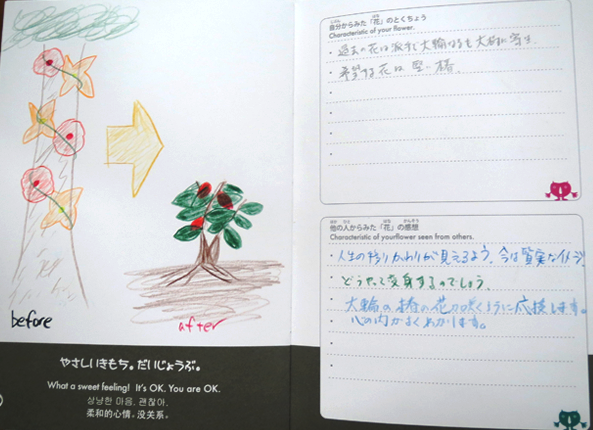 before
after
やさしいきもち。だいじょうぶ。
What a sweet feeling! It's OK. You are OK.
상냥한 마음, 괜찮아.
柔和的心情。没关系。
じぶん はな
自分からみた「花」のとくちょう
Characteristic of your flower.
・過去の花は派手で大輪なるも大樹に寄生
・希望する花は 堅い椿
ほか ひと はな かんそう
他の人からみた「花」の感想
Characteristic of yourflower seen from others.
・人生の移りかわりが見えるよう、今は質実なイメージ
・どうやって変身するのでしょう。
・大輪の椿の花が咲くように応援します。
心の内がよくわかります。